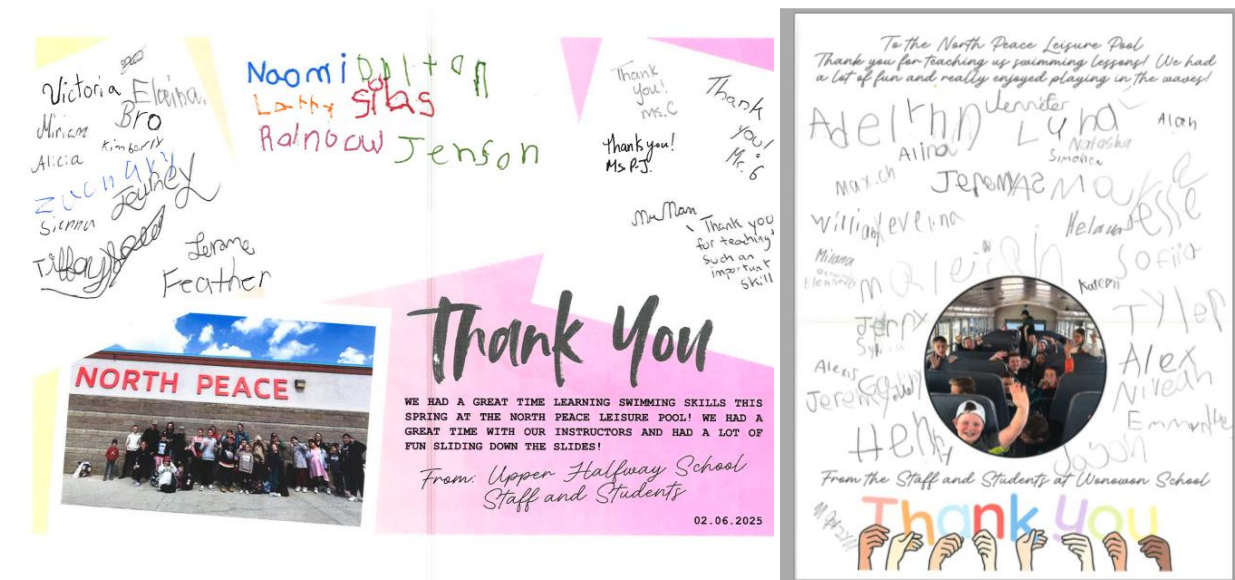 Victoria
Elaina.
Miriam
Bro
Kimberly
Alicia
Zachary
Journey
Sienna
Tiffany
Jerome
Feather
Naomi Dalton
Larry Silas
Rainbow Jenson
Thank
you!
Ms. C
Thank
you!
Mr. G
thank you!
Ms P.J.
Thank you
for teaching
such an
important
skill
NORTH PEACE
Thank You
WE HAD A GREAT TIME LEARNING SWIMMING SKILLS THIS
SPRING AT THE NORTH PEACE LEISURE POOL! WE HAD A
GREAT TIME WITH OUR INSTRUCTORS AND HAD A LOT OF
FUN SLIDING DOWN THE SLIDES!
From: Upper Halfway School
Staff and Students
02.06.2025
To the North Peace Leisure Pool
Thank you for teaching us swimming lessons! We had
a lot of fun and really enjoyed playing in the waves!
Jennifer
Adelynn
Luna
Alan
Alina
Natasha
Simonea
Max.ch
Jeremy
William
evelina
Helana
Jesse
Milana
Maleigh
Sofiia
Tyler
Alexis
Alex
Jeremy
Niveah
Henry
Jason
From the Staff and Students at Wonowon School
Thank you